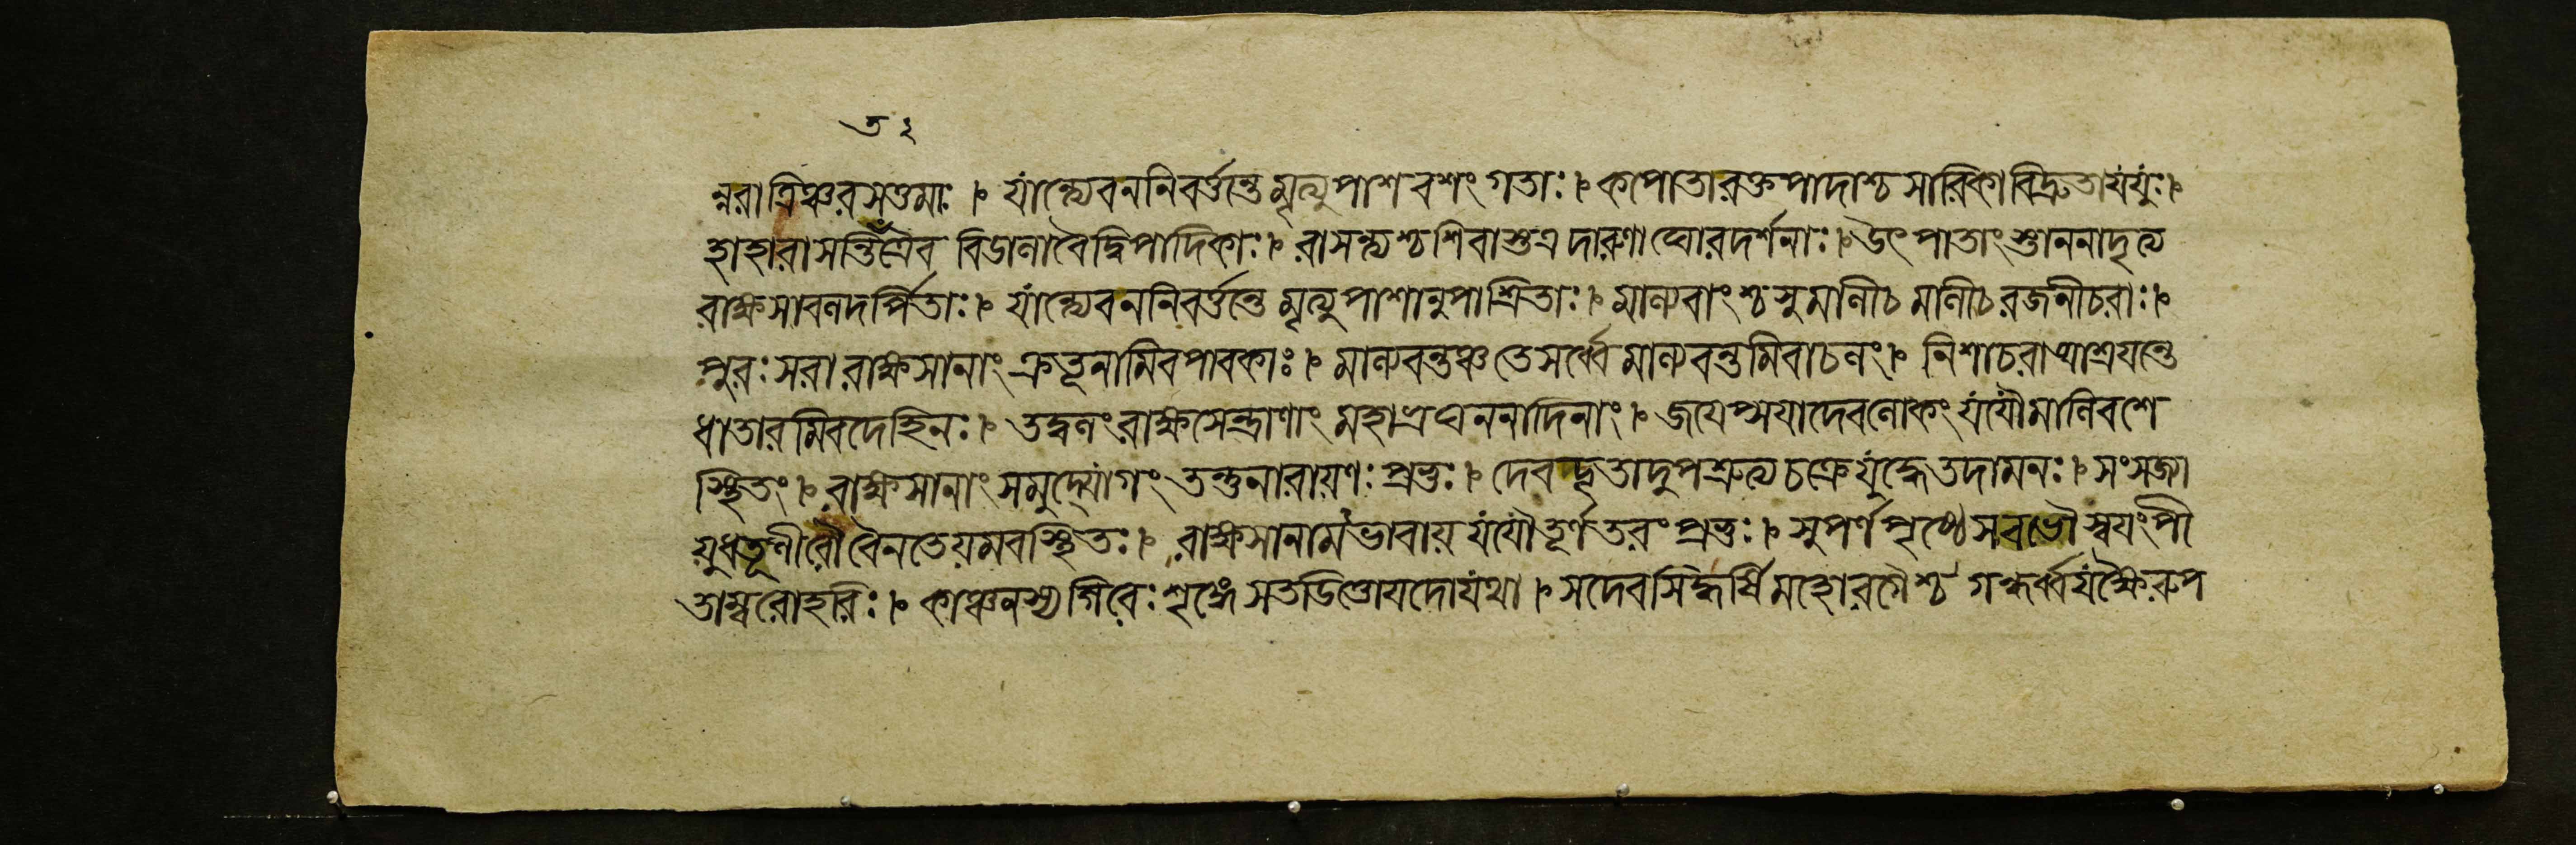 ন্নরাত্রিঞ্চরসত্তমাঃ । যান্ত্যেবননিবর্ত্তন্তে মৃত্যুপাশবশংগতাঃ । কপোতারক্তপাদাশ্চ সারিকাবিদ্রুতাযযুঃ ।
হাহারাসন্তিতত্রৈব বিডালাবৈদ্বিপাদিকাঃ । রাসন্ত্যশ্চশিবাস্তত্র দারুণাঘোরদর্শনাঃ । উৎপাতাংস্তাননাদৃত্য
রাক্ষসাবলদর্পিতাঃ । যান্ত্যেবননিবর্ত্তন্তে মৃত্যুপাশানুপাশ্রিতাঃ । মাল্যবাংশ্চ সুমালীচ মালীচরজনীচরাঃ ।
পুরঃসরারাক্ষসানাং ক্রতূনামিবপাবকাঃ । মাল্যবন্তঞ্চতেসর্ব্বে মাল্যবন্তমিবাচলং । নিশাচরাআশ্রযন্তে
ধাতারমিবদেহিনঃ । তদ্বলংরাক্ষসেন্দ্রাণাং মহাভ্রঘননাদিনাং । জযেপ্সযাদেবলোকং যযৌমালিবশে
স্থিতং । রাক্ষসানাংসমুদ্যোগং তন্তুনারাযণঃপ্রভুঃ । দেবদূতাদুপশ্রুত্য চক্রেযুদ্ধেতদামনঃ । সংসজা
যুধতূণীরৌবৈনতেযমবস্থিতঃ । রাক্ষসানামভাবায যযৌতূর্ণতরংপ্রভুঃ । সুপর্ণপৃষ্ঠেসবভৌস্বযংপী
তাম্বরোহরিঃ । কাঞ্চনস্যগিরেঃশৃঙ্গে সতডিত্তোযদোযথা । সদেবসিদ্ধর্ষিমহোরগৈশ্চ গন্ধর্ব্বযক্ষৈরুপ